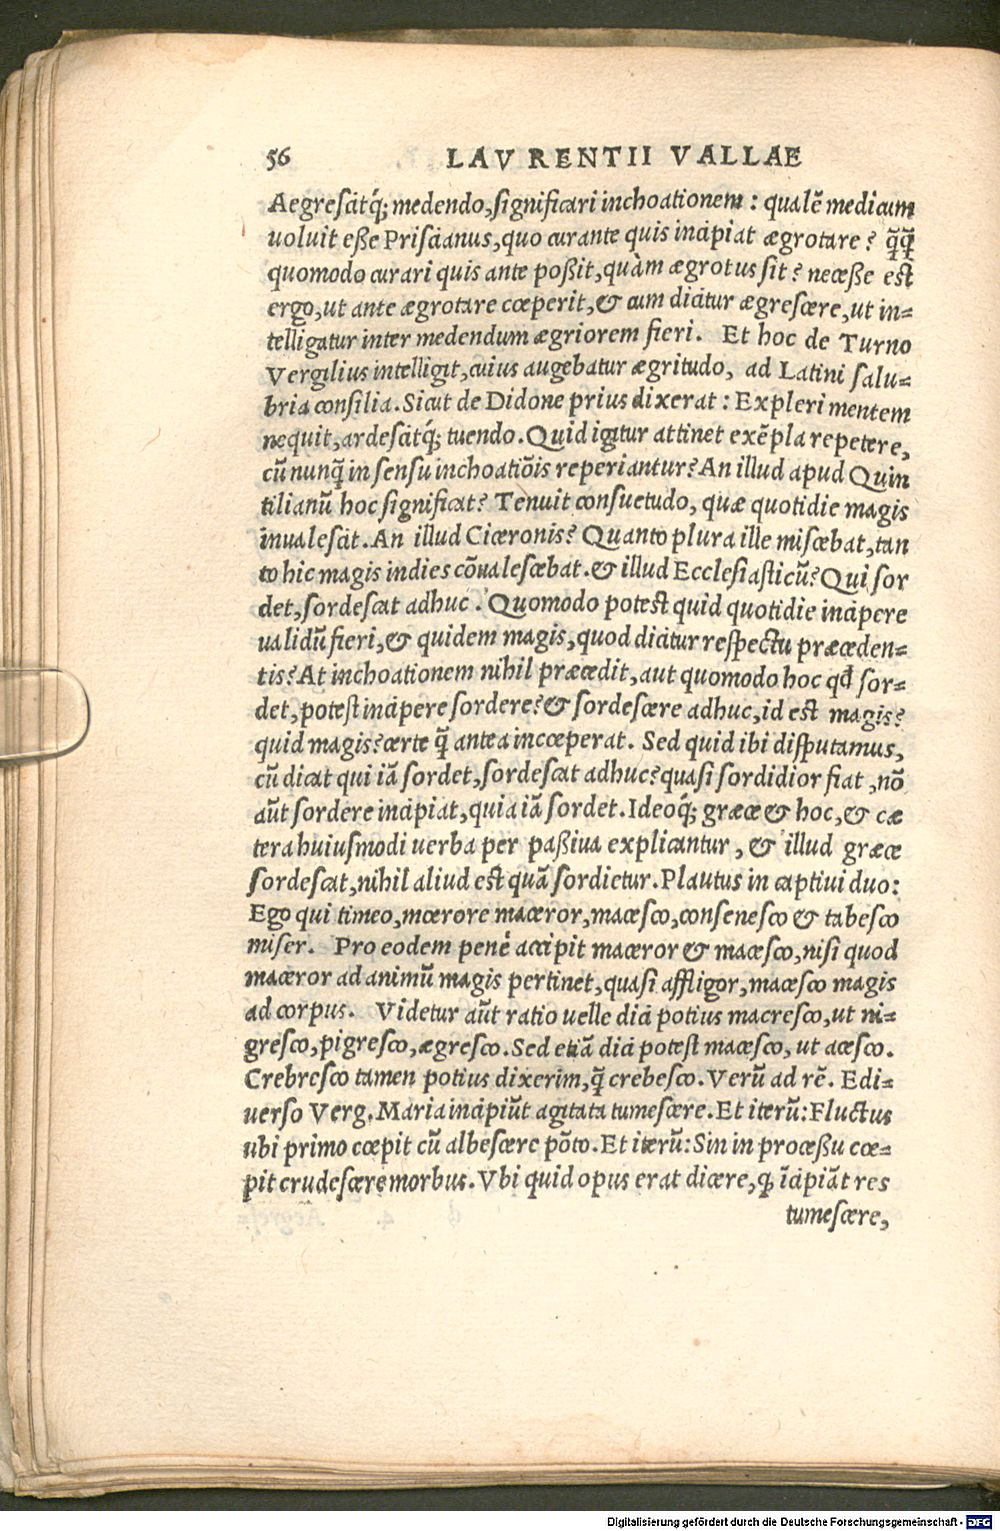 56 LAVRENTII VALLAE
Aegrescitq́; medendo, significari inchoationem: qualē medicum
uoluit esse Priscianus, quo curante quis incipiat ægrotare? q̄q̄
quomodo curari quis ante possit, quàm ægrotus sit? necesse est
ergo, ut ante ægrotare cœperit, & cum dicitur ægrescere, ut in-
telligatur inter medendum ægriorem fieri. Et hoc de Turno
Vergilius intelligit, cuius augebatur ægritudo, ad Latini salu-
bria consilia. Sicut de Didone prius dixerat: Expleri mentem
nequit, ardescitq́; tuendo. Quid igitur attinet exēpla repetere,
cū nunq̄ in sensu inchoatiōis reperiantur? An illud apud Quin
tilianū hoc significat? Tenuit consuetudo, quæ quotidie magis
inualescit. An illud Ciceronis? Quanto plura ille miscebat, tan
to hic magis indies cōualescebat. & illud Ecclesiasticū? Qui sor
det, sordescat adhuc. Quomodo potest quid quotidie incipere
ualidū fieri, & quidem magis, quod dicitur respectu præceden-
tis? At inchoationem nihil præcedit, aut quomodo hoc qd̄ sor-
det, potest incipere sordere? & sordescere adhuc, id est magis?
quid magis? certe q̄ antea incœperat. Sed quid ibi disputamus,
cū dicat qui iā sordet, sordescat adhuc? quasi sordidior fiat, nō
aūt sordere incipiat, quia iā sordet. Ideoq́; græce & hoc, & cæ
tera huiusmodi uerba per passiua explicantur, & illud græce
sordescat, nihil aliud est quā sordietur. Plautus in captiui duo:
Ego qui timeo, mœrore maceror, macesco, consenesco & tabesco
miser. Pro eodem penè accipit maceror & macesco, nisi quod
maceror ad animū magis pertinet, quasi affligor, macesco magis
ad corpus. Videtur aūt ratio uelle dici potius macresco, ut ni-
gresco, pigresco, ægresco. Sed etiā dici potest macesco, ut acesco.
Crebresco tamen potius dixerim, q̄ crebesco. Verū ad rē. E di-
uerso Verg. Maria incipiūt agitata tumescere. Et iterū: Fluctus
ubi primo cœpit cū albescere pōto. Et iterū: Sin in processu cœ-
pit crudescere morbus. Vbi quid opus erat dicere, ꝙ īcipiāt res
tumescere,
Digitalisierung gefördert durch die Deutsche Forschungsgemeinschaft - DFG